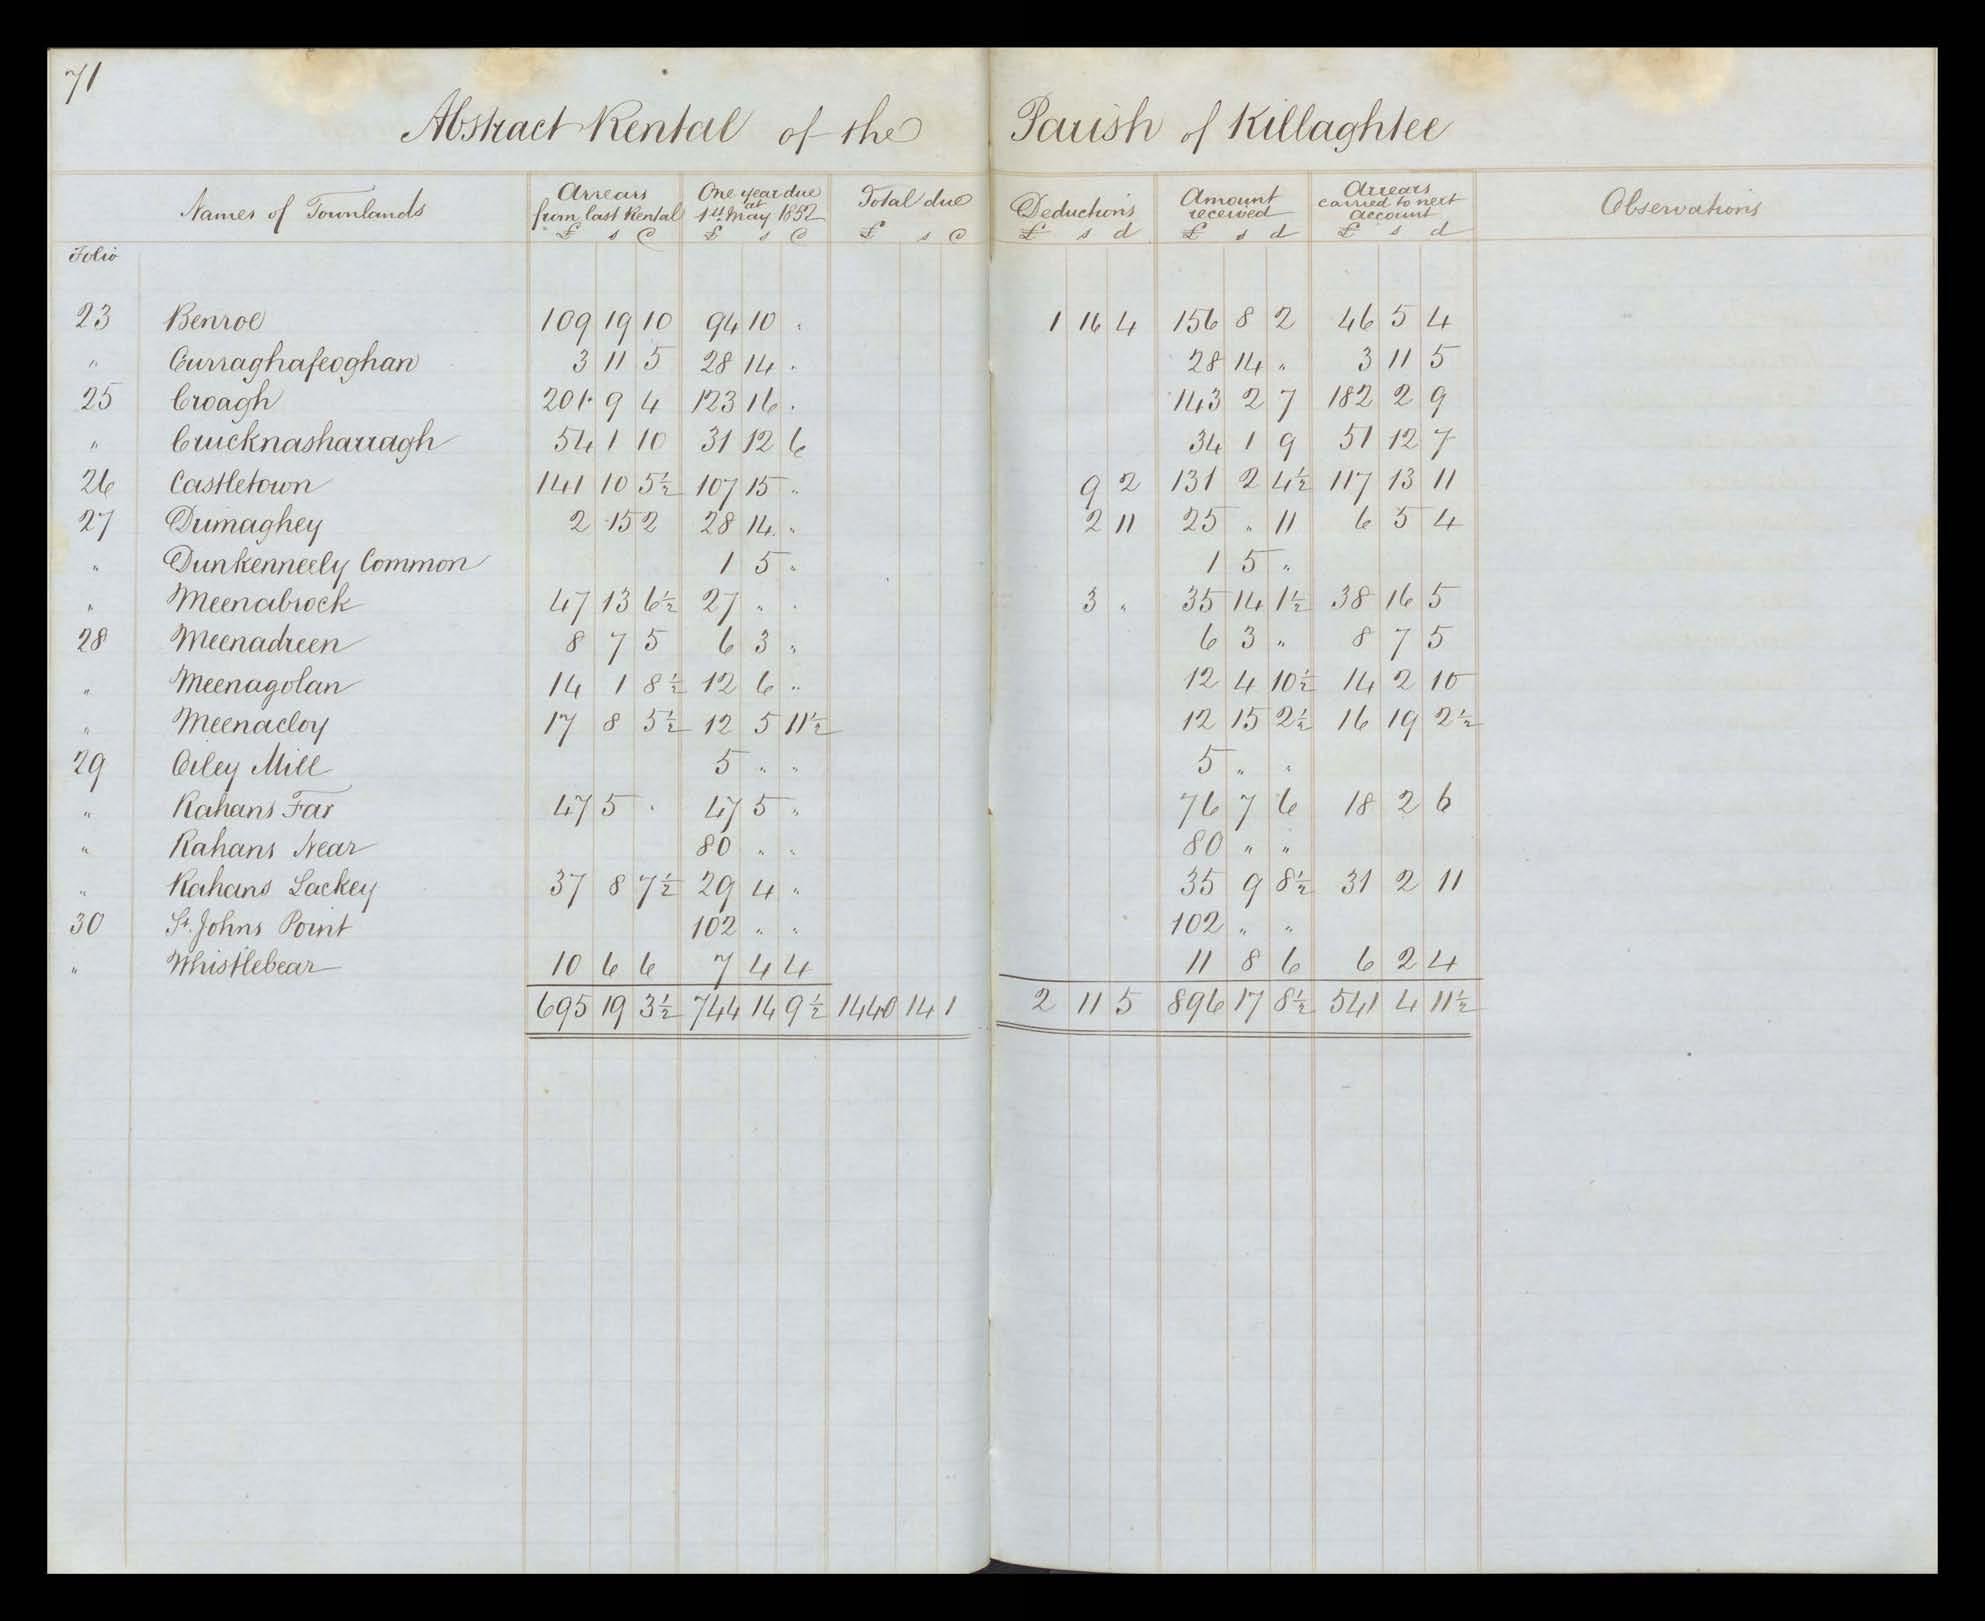 71
Abstract Rental of the Parish of Killaghtee
Names of Townlands Arrears from last Rental £ s d One year due at 1st May 1852 £ s d Total due £ s d Deductions £ s d Amount received £ s d Arrears carried to next account £ s d Observations
Folio
23 Benroe 109 19 10 94 10 " 1 16 4 156 8 2 46 5 4
" Curraghafeoghan 3 11 5 28 14 " 28 14 " 3 11 5
25 Croagh 201 9 4 123 16 " 143 2 7 182 2 9
" Crucknasharragh 54 1 10 31 12 6 34 1 9 51 12 7
26 Castletown 141 10 5½ 107 15 " 9 2 131 2 4½ 117 13 11
27 Drimaghey 2 15 2 28 14 " 2 11 25 " 11 6 5 4
" Dunkenneely Common 1 5 " 1 5 "
" Meenabrock 47 13 6½ 27 " " 3 " 35 14 1½ 38 16 5
28 Meenadreen 8 7 5 6 3 " 6 3 " 8 7 5
" Meenagolan 14 1 8½ 12 6 " 12 4 10½ 14 2 10
" Meenacloy 17 8 5½ 12 5 11½ 12 15 2½ 16 19 2½
29 Oiley Mill 5 " " 5 " "
" Rahans Far 47 5 " 47 5 " 76 7 6 18 2 6
" Rahans Near 80 " " 80 " "
" Rahans Lackey 37 8 7½ 29 4 " 35 9 8½ 31 2 11
30 St. Johns Point 102 " " 102 " "
" Whistlebear 10 6 6 7 4 4 11 8 6 6 2 4
695 19 3½ 744 14 9½ 1440 14 1 2 11 5 896 17 8½ 541 4 11½